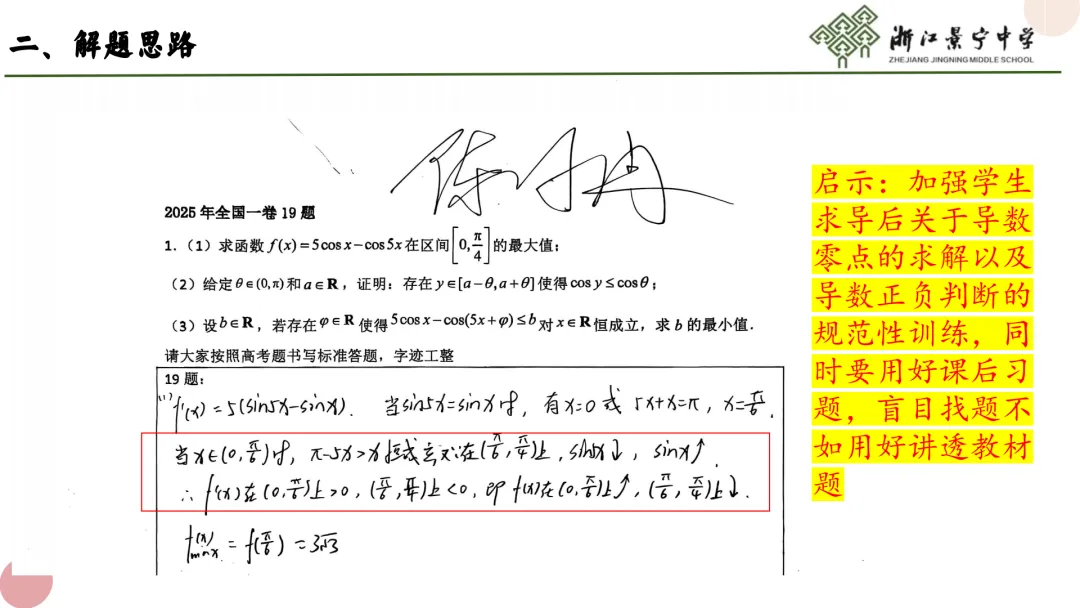 二、解题思路
浙江景宁中学
ZHEJIANG JINGNING MIDDLE SCHOOL
2025年全国一卷19题
1.（1）求函数 f(x)=5cos x−cos5x 在区间[0,π/4]的最大值;
（2）给定θ∈(0,π)和a∈R，证明：存在y∈[a−θ,a+θ]使得cos y≤cosθ;
（3）设b∈R，若存在φ∈R使得5cos x−cos(5x+φ)≤b对x∈R恒成立，求b的最小值.
请大家按照高考题书写标准答题，字迹工整
19题:
(1) f'(x)=5(sin5x−sinx). 当sin5x=sinx时，有x=0或5x+x=π，x=π/6.
当x∈(0,π/6)时，π−5x>x恒成立 又在(π/6,π/4)上，sin5x↓，sinx↑
∴ f'(x)在(0,π/6)上>0，(π/6,π/4)上<0，即f(x)在(0,π/6)上↑，(π/6,π/4)上↓.
f(x)max=f(π/6)=3√3
启示：加强学生
求导后关于导数
零点的求解以及
导数正负判断的
规范性训练，同
时要用好课后习
题，盲目找题不
如用好讲透教材
题